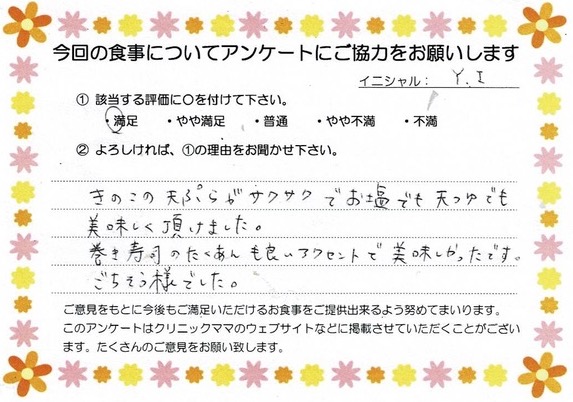 今回の食事についてアンケートにご協力をお願いします
イニシャル： Y.I
① 該当する評価に○を付けて下さい。
・満足 ・やや満足 ・普通 ・やや不満 ・不満
② よろしければ、①の理由をお聞かせ下さい。
きのこの天ぷらがサクサクでお塩でも天つゆでも
美味しく頂けました。
巻き寿司のたくあんも良いアクセントで美味しかったです。
ごちそう様でした。
ご意見をもとに今後もご満足いただけるお食事をご提供出来るよう努めてまいります。
このアンケートはクリニックママのウェブサイトなどに掲載させていただくことがござい
ます。たくさんのご意見をお願い致します。